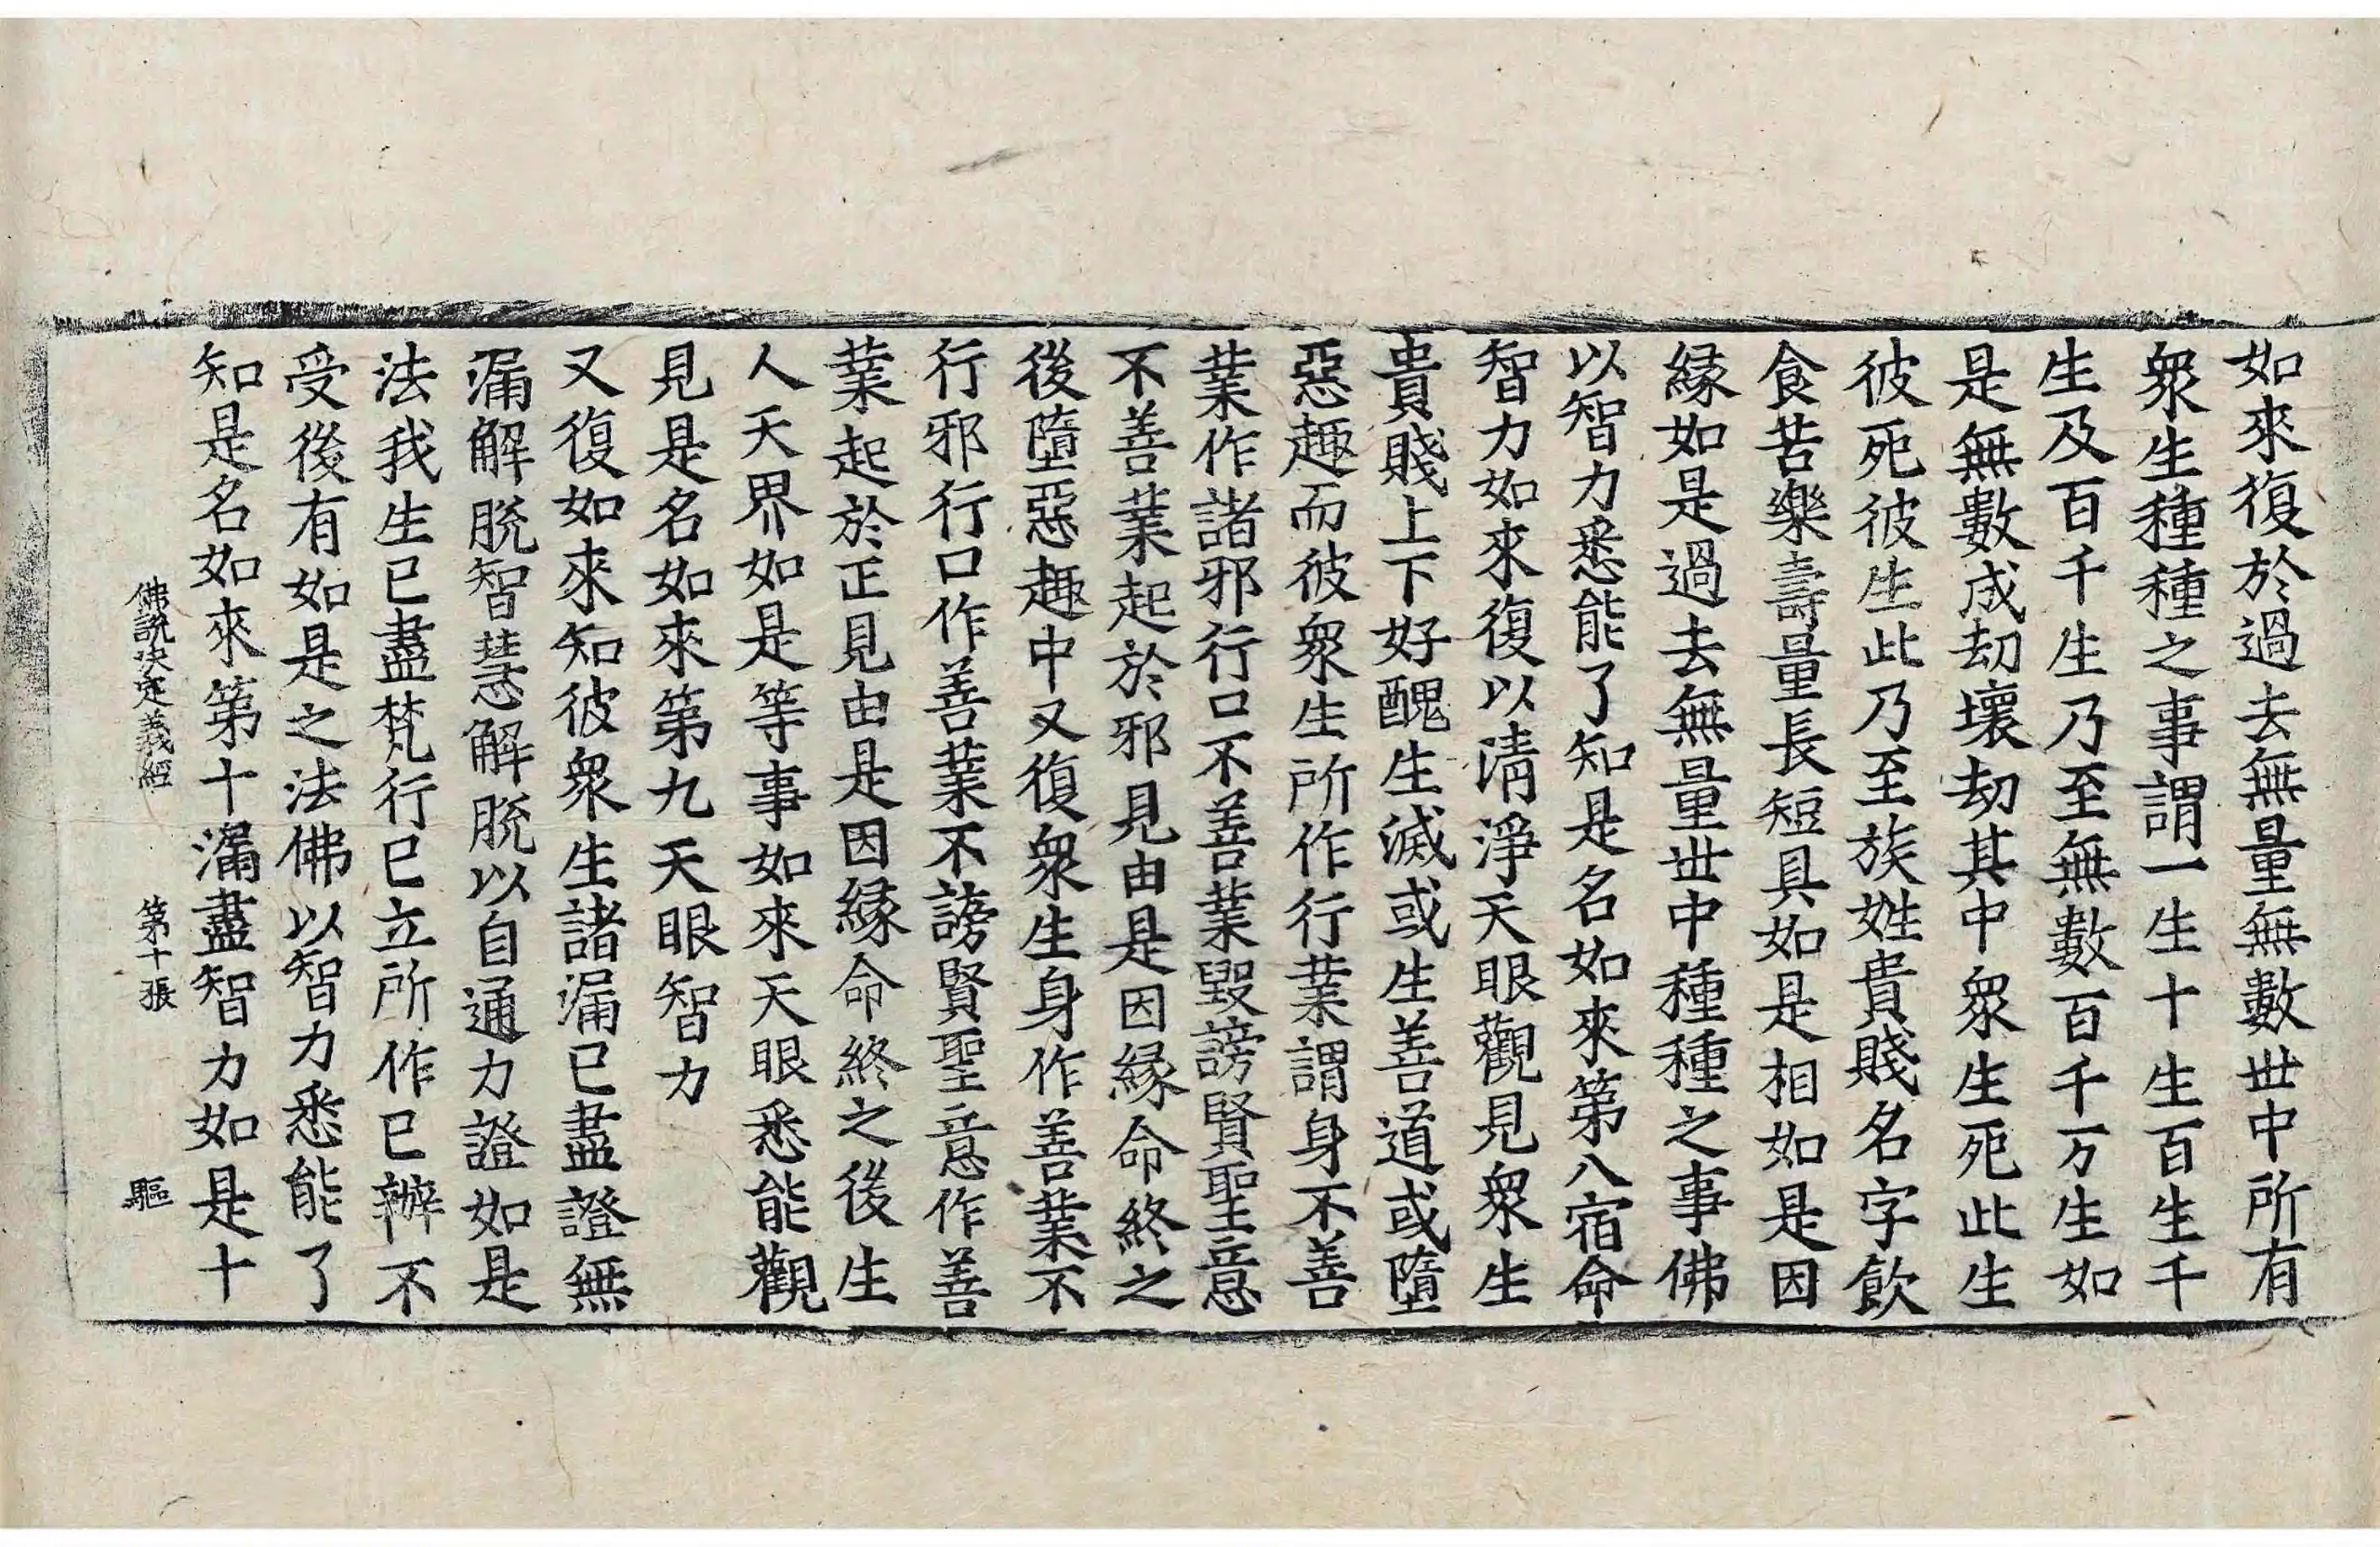 如來復於過去無量無數世中所有
衆生種種之事謂一生十生百生千
生及百千生乃至無數百千万生如
是無數成劫壞劫其中衆生死此生
彼死彼生此乃至族姓貴賤名字飲
食苦樂壽量長短具如是相如是因
緣如是過去無量世中種種之事佛
以智力悉能了知是名如來第八宿命
智力如來復以清淨天眼觀見衆生
貴賤上下好醜生滅或生善道或墮
惡趣而彼衆生所作行業謂身不善
業作諸邪行口不善業毀謗賢聖意
不善業起於邪見由是因緣命終之
後墮惡趣中又復衆生身作善業不
行邪行口作善業不謗賢聖意作善
業起於正見由是因緣命終之後生
人天界如是等事如來天眼悉能觀
見是名如來第九天眼智力
又復如來知彼衆生諸漏已盡證無
漏解脫智慧解脫以自通力證如是
法我生已盡梵行已立所作已辦不
受後有如是之法佛以智力悉能了
知是名如來第十漏盡智力如是十
佛說決定義經 第十張 驅